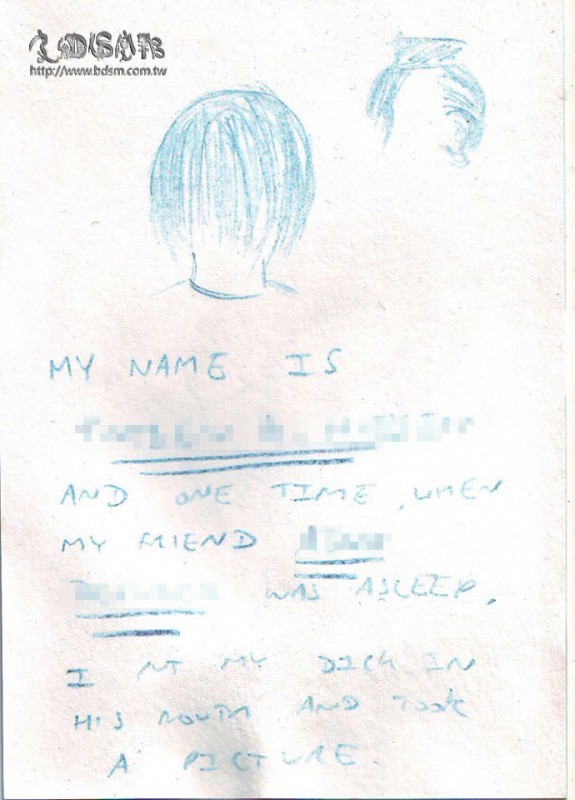 http://www.bdsm.com.tw
MY NAME IS
AND ONE TIME, WHEN
MY FRIEND
WAS ASLEEP,
I PUT MY DICK IN
HIS MOUTH AND TOOK
A PICTURE.